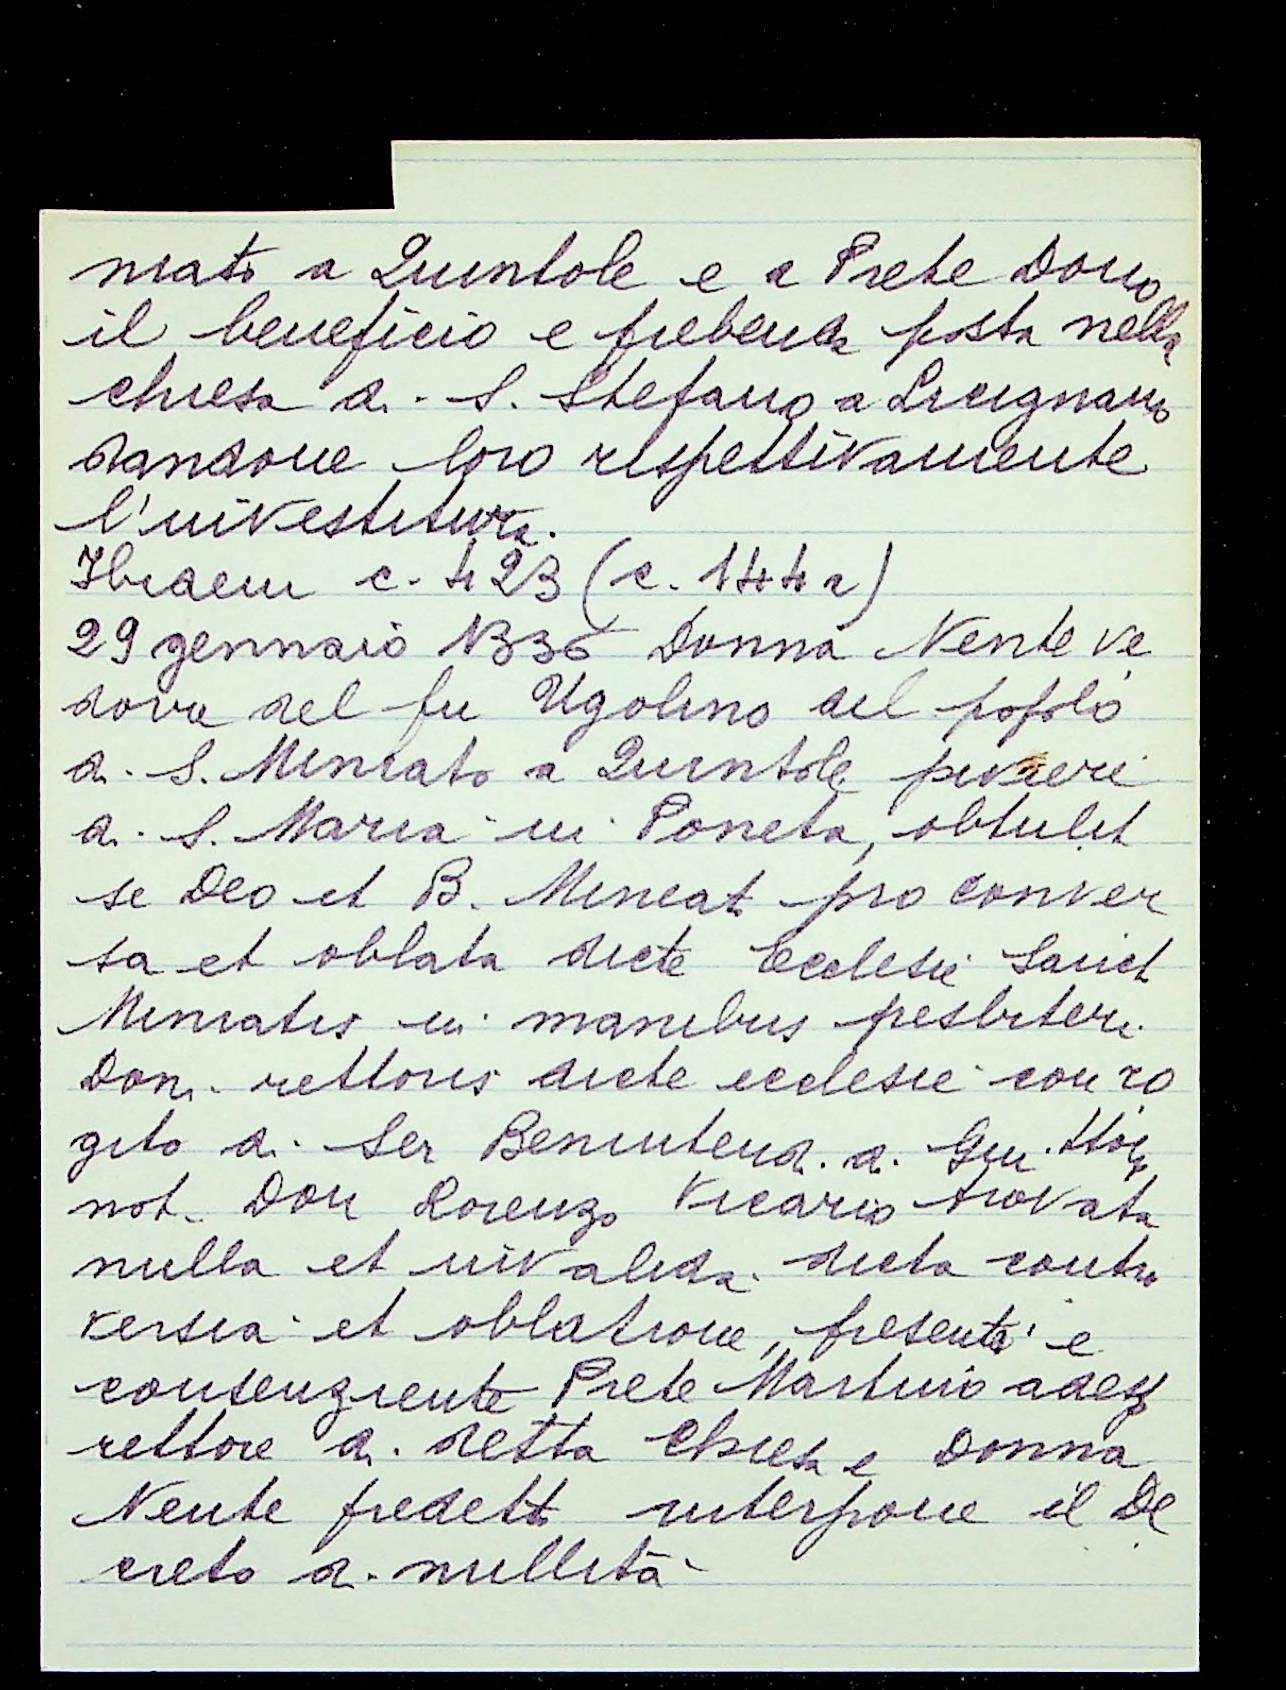 niato a Quintole e a Prete Dono
il beneficio e prebenda posta nella
chiesa di S. Stefano a Lucignano
dandone loro respettivamente
l'investitura.
Ibidem c. 423 (c. 144 r)
29 gennaio 1336 Donna Nente ve
dova del fu Ugolino del popolo
di S. Miniato a Quintole piviere
di S. Maria in Poneta, obtulit
se Deo et B. Miniati pro conver
sa et oblata dicte Ecclesie Sancti
Miniatis in manibus presbiteri
Doni rettoris dicte ecclesie con ro
gito di Ser Benintendi di
not. Don Lorenzo Vicario trovata
nulla et invalida dicta contro
versia et oblatione, presente e
consenziente Prete Martino adesso
rettore di detta Chiesa e Donna
Nente predetti interpone il De
creto di nullità